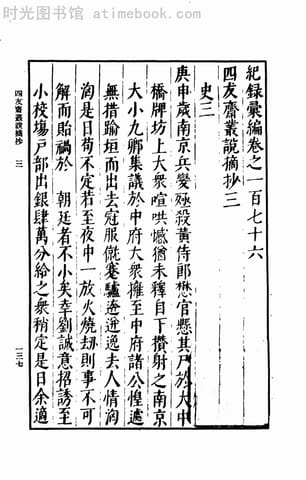 时光图书馆 · atimebook.com
紀録彙編卷之一百七十六
四友齋叢說摘抄三
史三
庚申歲南京兵變殛殺黃侍郎懋官懸其尸於大中
橋牌坊上大衆喧哄憾猶未釋自下攢射之南京
大小九卿集議於中府大衆擁至中府諸公惶遽
無措踰垣而出去冠服僦蹇驢逃遁去人情洶
洶是日苟不定若至夜中一放火燒刼則事不可
解而貽禍於 朝廷者不小矣幸劉誠意招誘至
小校場戶部出銀肆萬分給之衆稍定是日余適
四友齋叢說摘抄 三
一三七